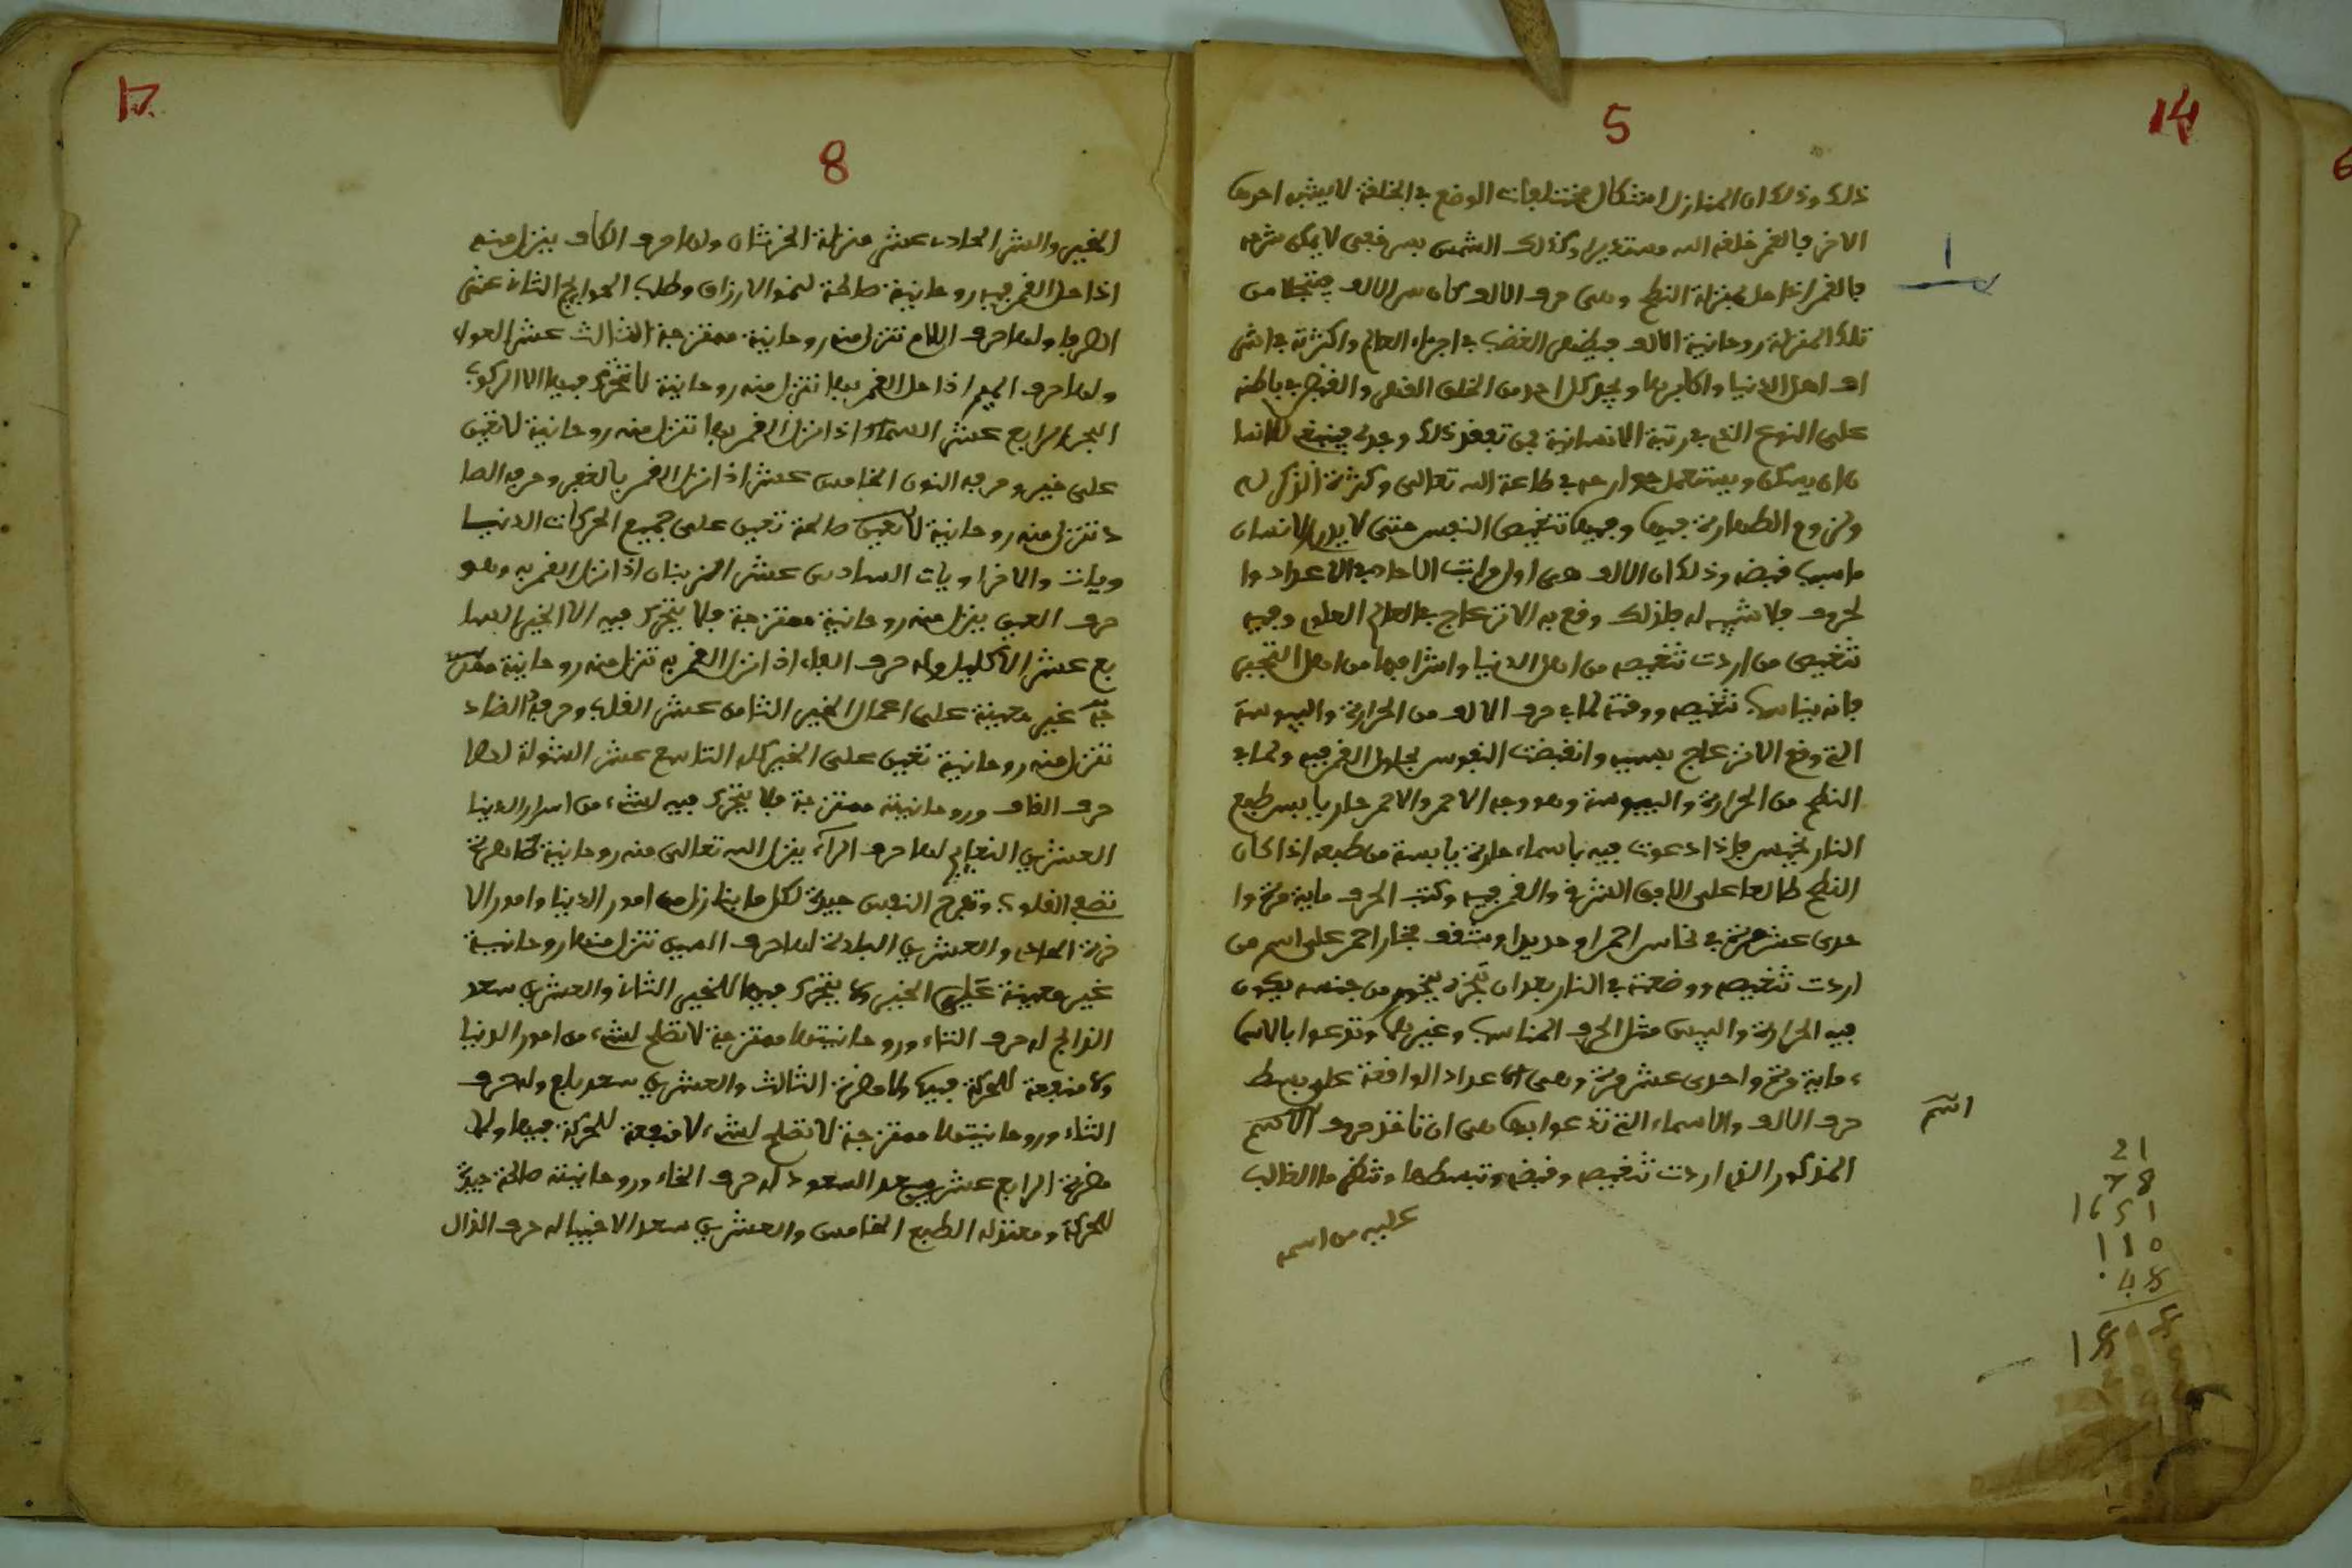 14
5
ذلك وذلك ان المنازل اشكال مختلفات الوضع في الخلقة لا يشبه احدها
الاخر فالقمر خلقه الله مستديرا وكذلك الشمس
فالقمر اذا حل بمنزلة النطح وهي حرف الالف كان سر الالف
تلك المنزلة روحانية الالف فيظهر الغضب في اجزاء العالم واكثره في اشر
اف اهل الدنيا واكابرها ويجد كل احد من الخلق القهر والقبض في باطنه
على النوع الذي في رتبة الانسانية فمن تفقد ذلك وجده فينبغي للانسا
ن ان يسكن ويستعمل جوارحه في طاعة الله تعالى وكثرة الذكر له
ولزوم الطهارة فيها وفيها تنغيص النفس حتى لا يدري الانسان
ما سبب قبضه وذلك ان الالف هي اول مراتب الاحاد في الاعداد وا
لحروف فلا شبيه له فلذلك وقع به الانزعاج في العالم العلوي وفيه
تنغيص من اردت تنغيصه من اهل الدنيا واشرافها من اهل التجبر
فانه يناسب تنغيصه ووقته لما في حرف الالف من الحرارة واليبوسة
التي وقع الانزعاج بسببه وانقبضت النفوس لحلول القمر فيه ولما في
النطح من الحرارة واليبوسة وهو وجه الاحمر والاحمر حار يابس طبع
النار نحيس فاذا دعوت فيه باسماء حارة يابسة من طبعه اذا كان
النطح طالعا على الافق الشرقي والقمر فيه وكتب الحرف ماية مرة وا
حدى عشر مرة في نحاس احمر او حديد او شقف فخار احمر على اسم من
اردت تنغيصه ووضعته في النار بعد ان تبخره ببخور من جنسه يكون
فيه الحرارة واليبس مثل الحرف المناسب وغيرها وتدعوا بالاسما
ء ماية مرة واحدى عشر مرة وهي الاعداد الواقعة على بسط
حرف الالف والاسماء التي تدعوا بها هي ان تاخذ حروف الاسم
المذكور الذي اردت تنغيصه وقبضه وتبسطها وتنظر ما الغالب
عليه من اسمه
ا
اسم
21
78
1651
110
48
17
8
الخير والشر الحادي عشر منزلة الخرثان ولها حرف الكاف ينزل منه
اذا حل القمر فيه روحانية صالحة لنمو الارزاق وطلب الحوايج الثاني عشر
الصرفا ولها حرف اللام تنزل منه روحانية ممتزجة الثالث عشر العوا
ولها حرف الميم اذا حل القمر بها تنزل منه روحانية لا تتحرك فيها الا لركوب
البحر الرابع عشر السماك اذا نزل القمر بها تنزل منه روحانية لا تعين
على خير وحرفه النون الخامس عشر اذا نزل القمر بالغفر وحرفه الصا
د تنزل منه روحانية صالحة تعين على جميع الحركات الدنيا
ويات والاخراويات السادس عشر الزبنان اذا نزل القمر به وهو
حرف العين ينزل منه روحانية ممتزجة فلا يتحرك فيه الا الخير السا
بع عشر الاكليل وله حرف الفاء اذا نزل القمر به تنزل منه روحانية ممتز
جة غير معينة على اعمال الخير الثامن عشر القلب وحرفه الضاد
تنزل منه روحانية تعين على الخير كله التاسع عشر الشولة لها
حرف القاف وروحانيته ممتزجة فلا يتحرك فيه لشيء من اسرار الدنيا
العشرين النعايم لها حرف الراء ينزل الله تعالى منه روحانية طاهرة
تصفي القلوب وتفرح النفس جيدة لكل ما يتنازل من امور الدنيا وامور الا
خرة الحادي والعشرين البلدة لها حرف السين تنزل منها روحانية
غير معينة على الخير ولا يتحرك فيها للخير الثاني والعشرين سعد
الذابح له حرف التاء وروحانيتها ممتزجة لا تصلح لشيء من امور الدنيا
ولا منفعة للحركة فيها ولا مضرة الثالث والعشرين سعد بلع وله حرف
الثاء وروحانيتها ممتزجة لا تصلح لشيء لا منفعة للحركة فيها ولا
مضرة الرابع عشرين سعد السعود له حرف الخاء وروحانيته صالحة جيدة
للحركة ومعتدله الطبع الخامس والعشرين سعد الاخبيا له حرف الذال